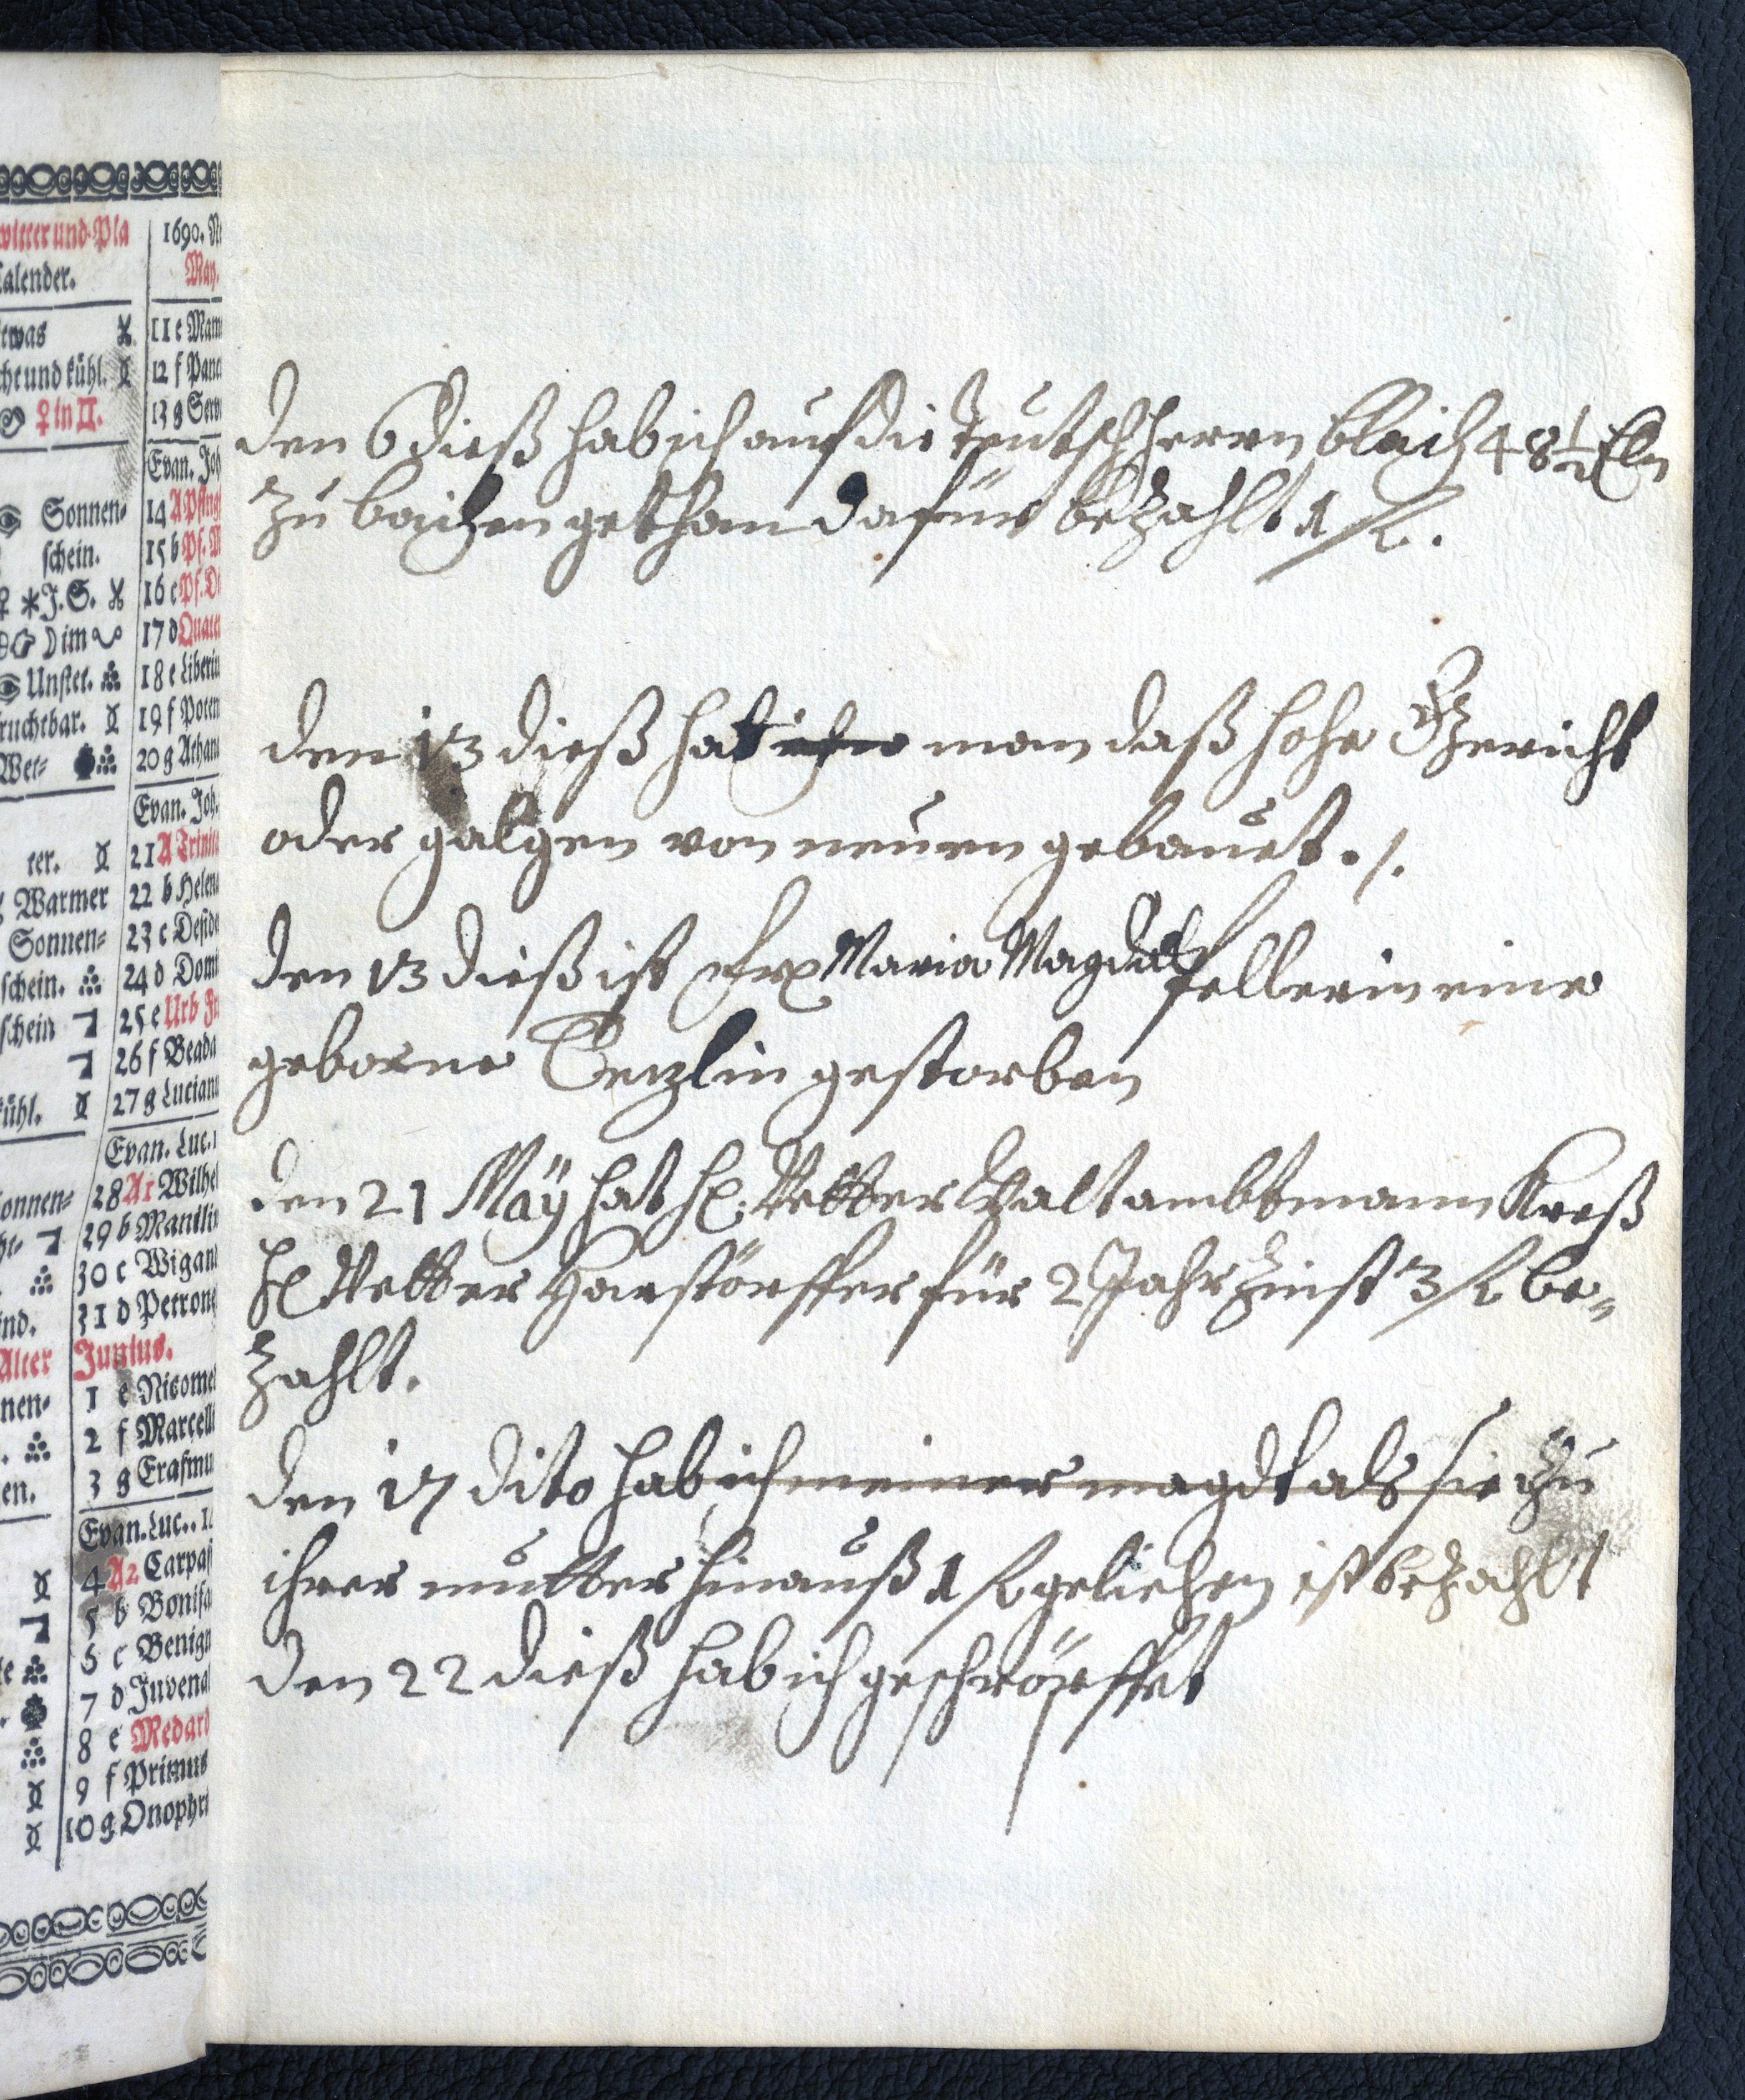 witter und Pla
Calender.
etwas
cht und kühl.
♀ in II.
Sonnen-
schein.
J. S.
im
Unstet.
fruchtbar.
Wet-
ter.
Warmer
Sonnen-
schein.
schein
kühl.
Sonnen-
ind.
Alter
nen-
en.
1690. N
May.
11 e Mam
12 f Panc
13 g Serv
Evan. Joh
14 A Pfing
15 b Pf. M
16 c Pf. D
17 d Quate
18 e Liberiu
19 f Poten
20 g Athana
Evan. Joh.
21 A Trinita
22 b Helena
23 c Deside
24 d Domi
25 e Urb
26 f Beada
27 g Luciana
Evan. Luc. 1
28 A1 Wilhe
29 b Manili
30 c Wigan
31 d Petrone
Junius.
1 e Nicome
2 f Marcelli
3 g Erasmu
Evan. Luc. 1
4 A2 Carpas
5 b Bonifa
6 c Benign
7 d Juvenal
8 e Medard
9 f Primus
10 g Onophri
den 6 dieß hab ich auf die Teutschherrn blaich 48 ½ Eln
zu blaichen gethan dafür bezahlt 1 fl.
den 13 dieß hat man daß hohe Gericht
oder galgen von neuen gebauet ./.
den 13 dieß ist Fr. Maria Magdal fellerin eine
geborne Tenzlin gestorben
den 21 Maÿ hat H. Vetter Waltambtmann Kreß
H Vetter Harstörffer für 2 Jahr Zinst 3 fl be-
zahlt.
den 17 dito hab ich meiner magdt als sie zu
ihrer mutter hinauß 1 fl geliehen ist bezahlt
den 22 dieß hab ich geschröpffet